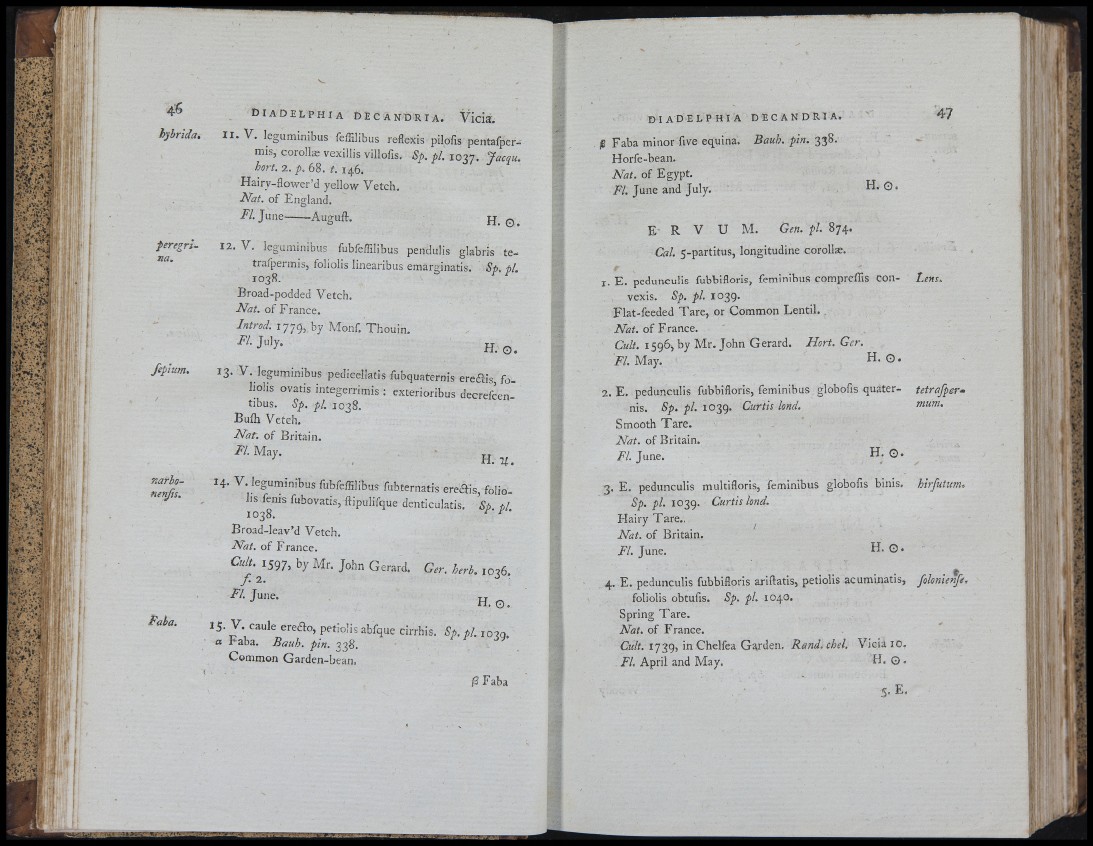 46 DIADELPHIA DECANDRIA. Vicia.
hybrida. 11. V. leguminibus ſeſſilibus reflexis piloſis pentaſper-
mis, corollæ vexillis villoſis. Sp. pl. 1037. Jacqu.
hort. 2. p. 68. t. 146.
Hairy-flower'd yellow Vetch.
Nat. of England.
Fl. June——Auguſt. H. ☉.
peregri-
na. 12. V. leguminibus ſubſeſſilibus pendulis glabris te-
traſpermis, foliolis linearibus emarginatis. Sp. pl.
1038.
Broad-podded Vetch.
Nat. of France.
Introd. 1779, by Monſ. Thouin.
Fl. July. H. ☉.
ſepium. 13. V. leguminibus pedicellatis ſubquaternis erectis, fo-
liolis ovatis integerrimis : exterioribus decreſcen-
tibus. Sp. pl. 1038.
Buſh Vetch.
Nat. of Britain.
Fl. May. H. ♃.
narbo-
nenſis. 14. V. leguminibus ſubſeſſilibus ſubternatis erectis, folio-
lis ſenis ſubovatis, ſtipuliſque denticulatis. Sp. pl.
1038.
Broad-leav'd Vetch.
Nat. of France.
Cult. 1597, by Mr. John Gerard. Ger. herb. 1036.
f. 2.
Fl. June. H. ☉.
Faba. 15. V. caule erecto, petiolis abſque cirrhis. Sp. pl. 1039.
α Faba. Bauh. pin. 338.
Common Garden-bean.
β Faba
DIADELPHIA DECANDRIA. 47
β Faba minor ſive equina. Bauh. pin. 338.
Horſe-bean.
Nat. of Egypt.
Fl. June and July. H. ☉.
ERVUM. Gen. pl. 874.
Cal. 5-partitus, longitudine corollæ.
1. E. pedunculis ſubbifloris, ſeminibus compreſſis con- Lens.
vexis. Sp. pl. 1039.
Flat-ſeeded Tare, or Common Lentil.
Nat. of France.
Cult. 1596, by Mr. John Gerard. Hort. Ger.
Fl. May. H. ☉.
2. E. pedunculis ſubbifloris, ſeminibus globoſis quater- tetraſper-
nis. Sp. pl. 1039. Curtis lond. mum.
Smooth Tare.
Nat. of Britain.
Fl. June. H. ☉.
3. E. pedunculis multifloris, ſeminibus globoſis binis. hirſutum.
Sp. pl. 1039. Curtis lond.
Hairy Tare.
Nat. of Britain.
Fl. June. H. ☉.
4. E. pedunculis ſubbifloris ariſtatis, petiolis acuminatis, ſolonienſe.
foliolis obtuſis. Sp. pl. 1040.
Spring Tare.
Nat. of France.
Cult. 1739, in Chelſea Garden. Rand. chel. Vicia 10.
Fl. April and May. H. ☉.
5. E.